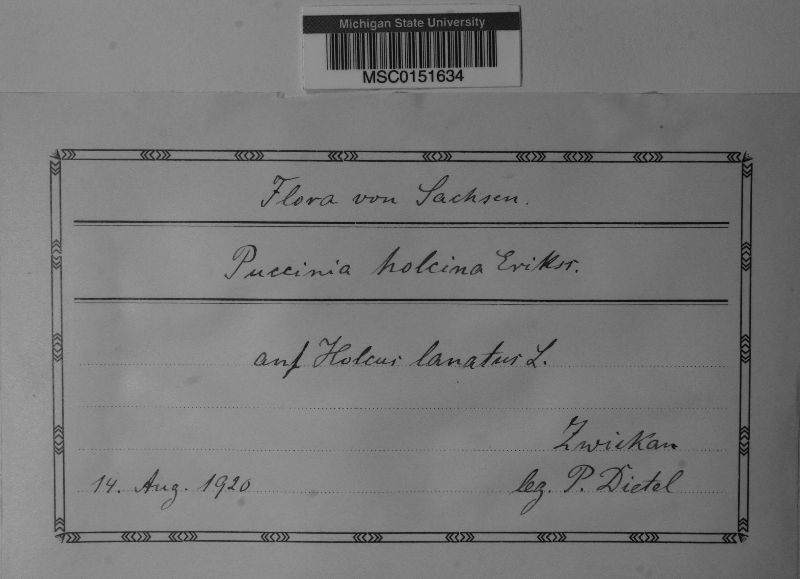 Michigan State University
MSC0151634
Flora von Sachsen.
Puccinia holcina Erikss.
auf Holcus lanatus L.
Zwickau
14. Aug. 1920 leg. P. Dietel